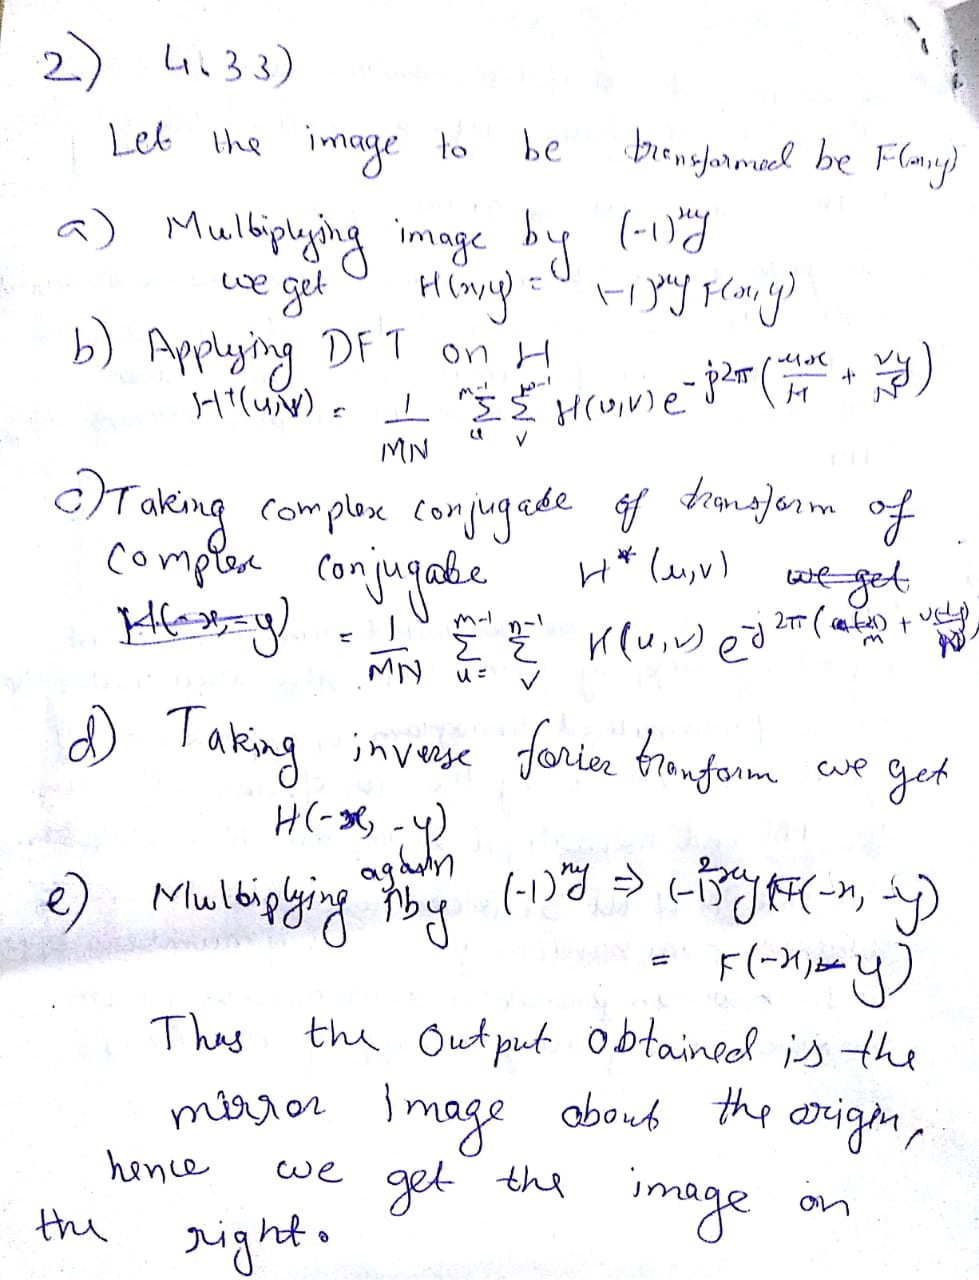 2) 4.33)
Let the image to be transformed be F(x,y)
a) Multiplying image by (-1)^xy
we get H(x,y) = (-1)^xy F(x,y)
b) Applying DFT on H
H+(u,v) = 1/MN Σ_u^M-1 Σ_v^N-1 H(u,v) e^-j2π(ux/M + vy/N)
c) Taking complex conjugate of transform of
complex conjugate H*(u,v) we get
H(-x,-y) = 1/MN Σ_u=^m-1 Σ_v^n-1 H(u,v) e^-j2π(u(-x)/m + v(-y)/N)
d) Taking inverse forier tranform we get
H(-x, -y)
e) Multiplying again by (-1)^xy ⇒ (-1)^2xy F(-x, -y)
= F(-x, -y)
Thus the Output Obtained is the
mirror Image about the origin,
hence we get the image on
the right.